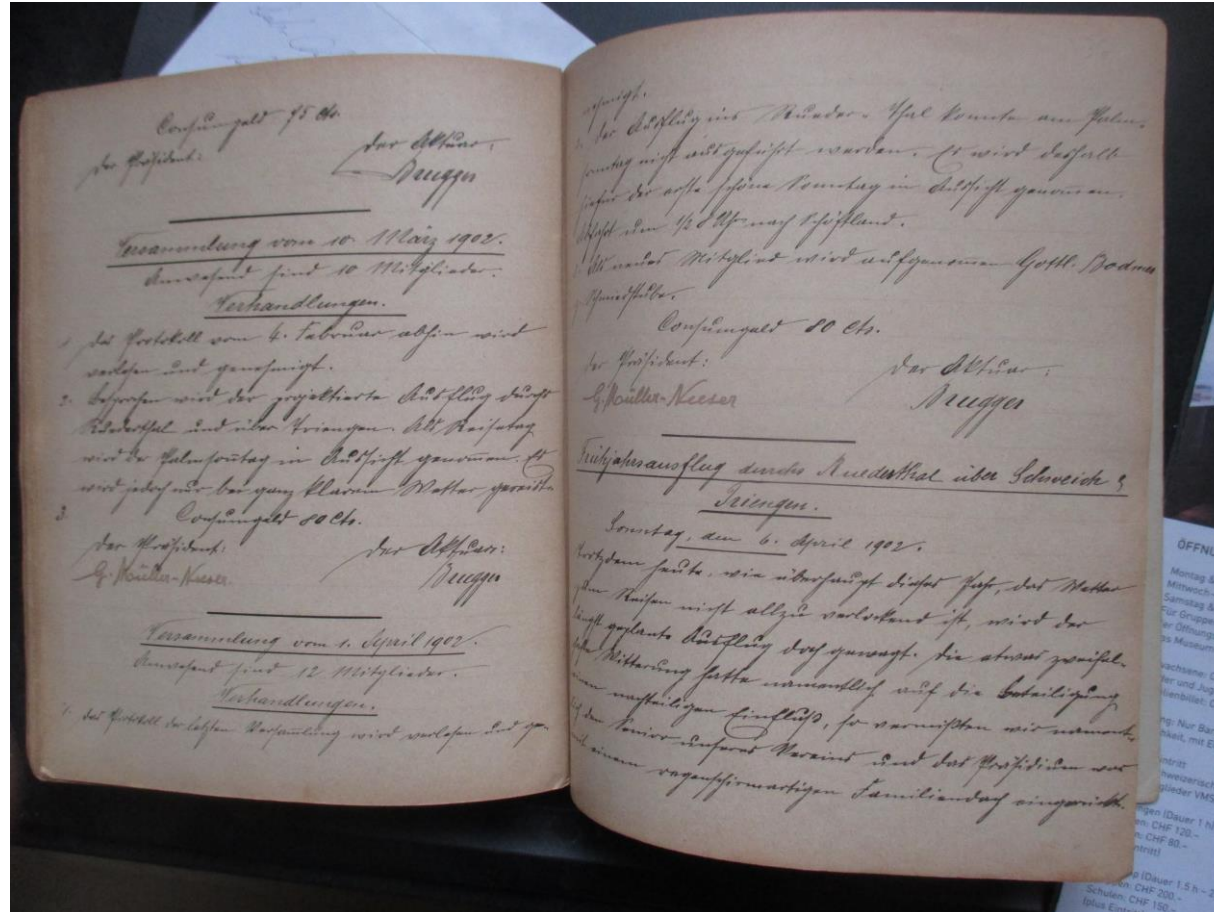 Consumgeld 75 Cts.
Der Präsident: Der Aktuar:
Brugger
Versammlung vom 10. März 1902.
Anwesend sind 10 Mitglieder.
Verhandlungen.
1. Das Protokoll vom 6. Februar abhin wird
verlesen und genehmigt.
2. Besprochen wird der projektierte Ausflug durchs
Ruederthal und über Triengen. Als Reisetag
wird der Palmsonntag in Aussicht genommen. Es
wird jedoch nur bei ganz klarem Wetter gereist.
3. Consumgeld 80 Cts.
Der Präsident: Der Aktuar:
G. Müller-Nieser Brugger
Versammlung vom 1. April 1902.
Anwesend sind 12 Mitglieder.
Verhandlungen.
1. Das Protokoll der letzten Versammlung wird verlesen und ge-
nehmigt.
2. Der Ausflug ins Rueder-Thal konnte am Palm-
sonntag nicht ausgeführt werden. Es wird deshalb
hiefür der erste schöne Sonntag in Aussicht genommen.
Abfahrt um 1/2 8 Uhr nach Schöftland.
Als neues Mitglied wird aufgenommen Gottl. Bodmer
Consumgeld 80 Cts.
Der Präsident: Der Aktuar:
G. Müller-Nieser Brugger
Frühjahrsausflug durchs Ruederthal über Schweich &
Triengen.
Sonntag, den 6. April 1902.
Trotzdem heute, wie überhaupt dieses Jahr, das Wetter
zum Reisen nicht allzu verlockend ist, wird der
längst geplante Ausflug doch gewagt. Die etwas zweifel-
hafte Witterung hatte namentlich auf die Beteiligung
einen nachteiligen Einfluß, so vermißten wir nament-
lich den Senior unseres Vereins und das Präsidium war
mit einem regenschirmartigen Familiendach eingerückt.
ÖFFNU
Montag &
Mittwoch-
Samstag &
Für Gruppe
er Öffnungs
as Museum
wachsene:
ng: Nur Bar
ntritt
chweizerisch
glieder VMS
CHF 120.-
CHF 80.-
(Dauer 1.5 h - 2
CHF 200.-
Schulen: CHF 150.-